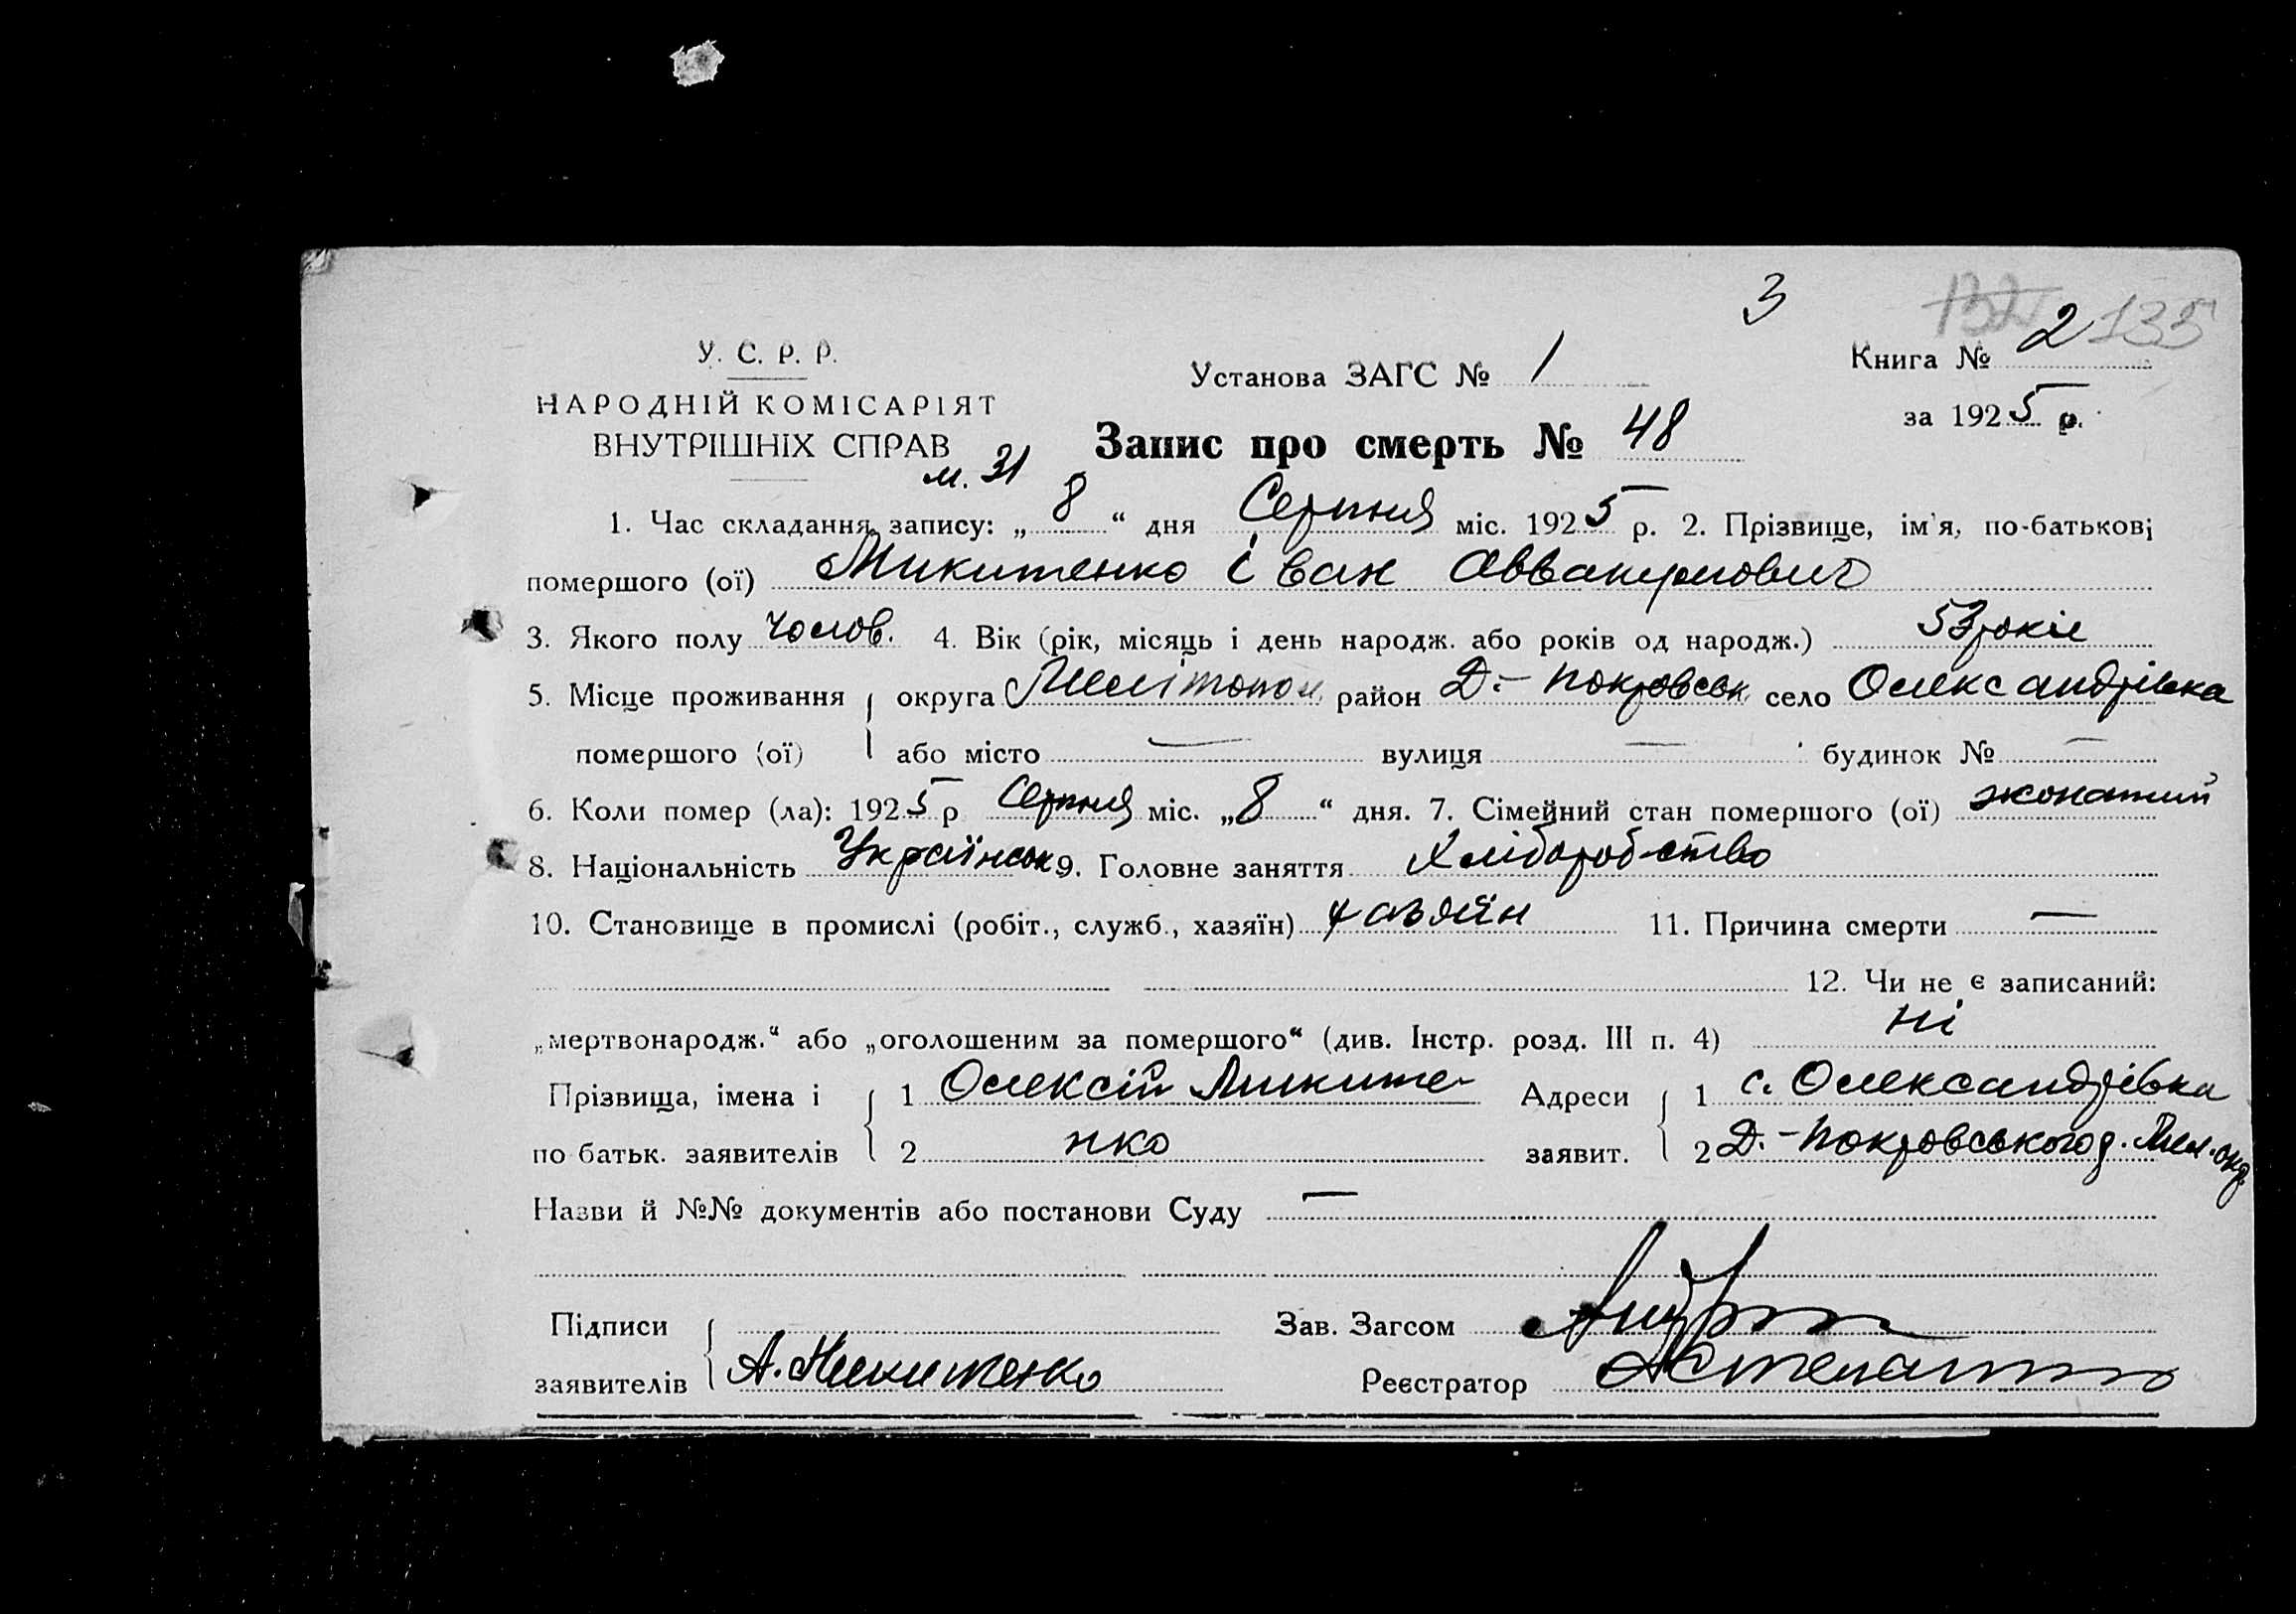 3
132 135
У. С. Р. Р.
Установа ЗАГС № 1
Книга № 2
НАРОДНІЙ КОМІСАРІЯТ
за 1925 р.
ВНУТРІШНІХ СПРАВ
Запис про смерть № 48
м. 31
1. Час складання запису: „8“ дня Серпня міс. 1925 р. 2. Прізвище, ім'я, по-батькові
помершого (ої) Микитенко Іван Аввакумович
3. Якого полу чолов. 4. Вік (рік, місяць і день народж. або років од народж.) 53 роки
5. Місце проживання округа Мелітопол район В.-Покровськ село Олександрівка
помершого (ої) або місто — вулиця — будинок № —
6. Коли помер (ла): 1925 р Серпня міс. „8“ дня. 7. Сімейний стан помершого (ої) жонатий
8. Національність Українськ 9. Головне заняття Хліборобство
10. Становище в промислі (робіт., служб., хазяїн) хазяїн 11. Причина смерти —
12. Чи не є записаний:
„мертвонародж.“ або „оголошеним за помершого“ (див. Інстр. розд. III п. 4) ні
Прізвища, імена і 1 Олексій Миките- Адреси 1 с. Олександрівка
по батьк. заявителів 2 нко заявит. 2 Д.-Покровського р. Мел. окр.
Назви й №№ документів або постанови Суду —
Підписи Зав. Загсом
заявителів А. Микитенко Реєстратор